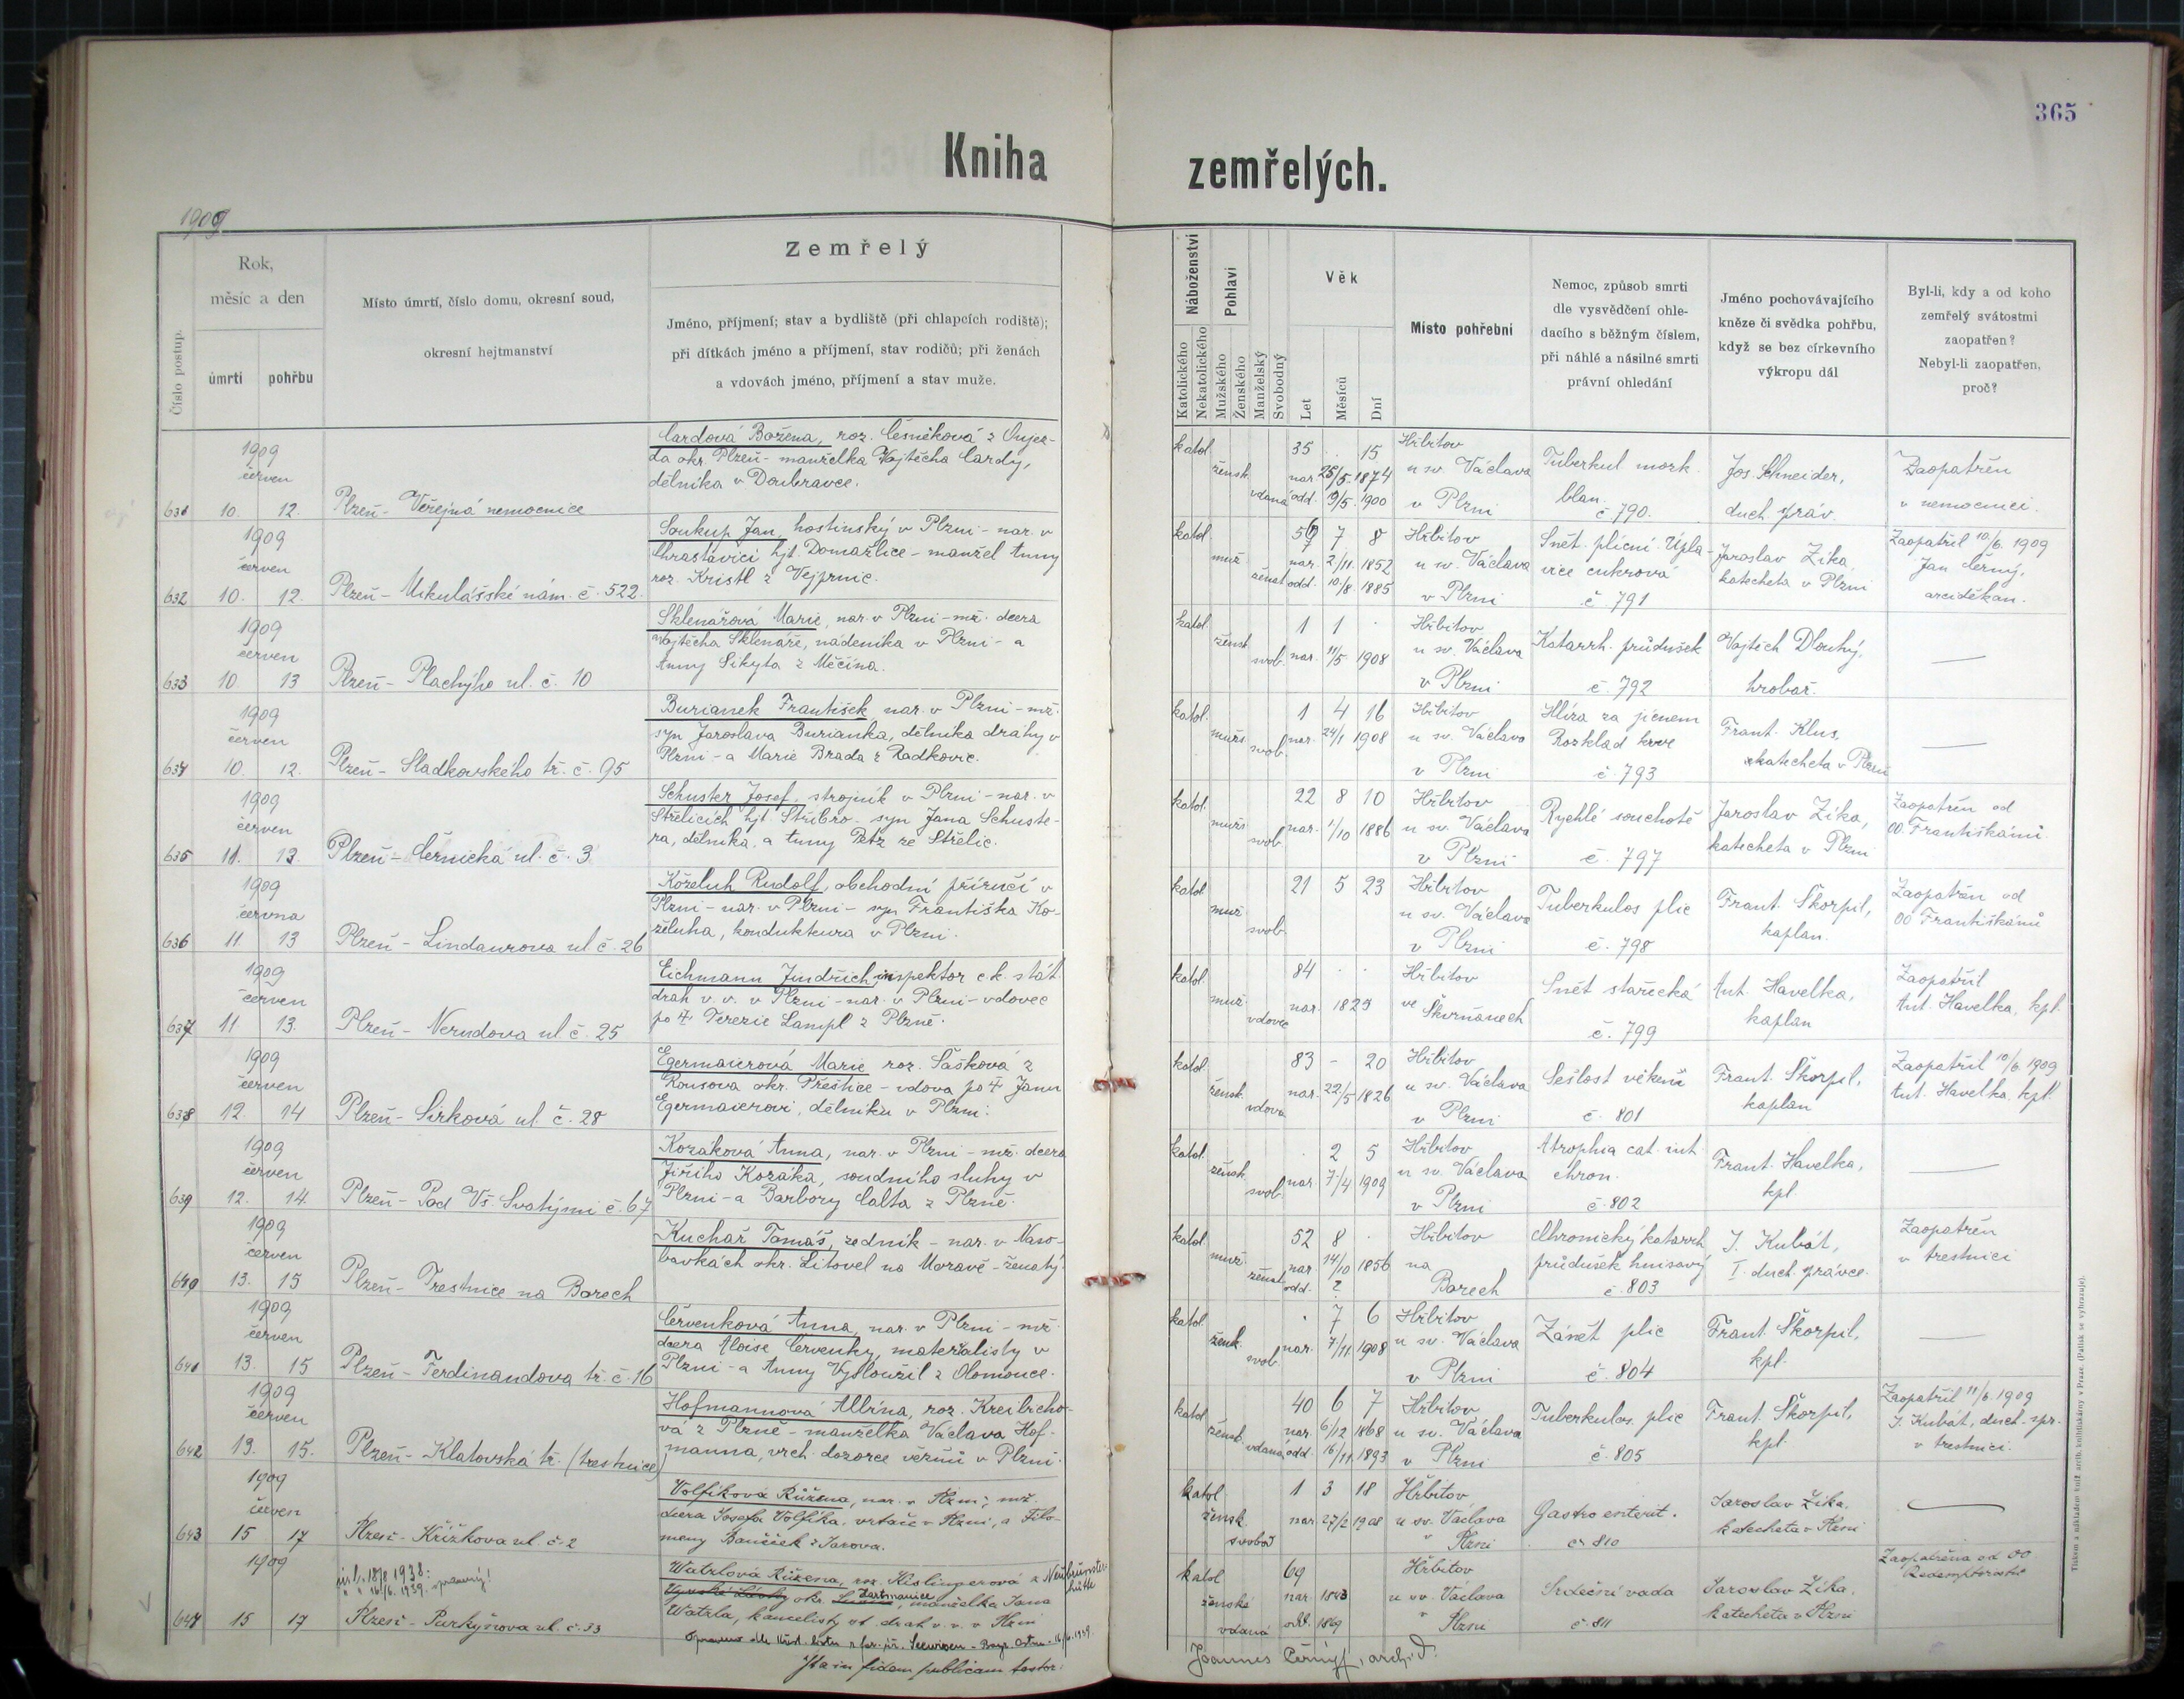 365
Kniha
zemřelých.
1909
Číslo postup.
Rok,
měsíc a den
úmrtí
pohřbu
Místo úmrtí, číslo domu, okresní soud,
okresní hejtmanství
Zemřelý
Jméno, příjmení; stav a bydliště (při chlapcích rodiště);
při dítkách jméno a příjmení, stav rodičů; při ženách
a vdovách jméno, příjmení a stav muže.
Náboženství
Katolického
Nekatolického
Pohlaví
Mužského
Ženského
Manželský
Svobodný
Věk
Let
Měsíců
Dní
Místo pohřební
Nemoc, způsob smrti
dle vysvědčení ohle-
dacího s běžným číslem,
při náhlé a násilné smrti
právní ohledání
Jméno pochovávajícího
kněze či svědka pohřbu,
když se bez církevního
výkropu dál
Byl-li, kdy a od koho
zemřelý svátostmi
zaopatřen?
Nebyl-li zaopatřen,
proč?
1909
červen
631 10. 12. Plzeň - Veřejná nemocnice
Cardová Božena, roz. Česneková z Oujez-
da okr. Plzeň - manželka Vojtěcha Cardy,
dělníka v Doubravce.
katol. žensk. vdaná
35 . 15
nar. 25/5. 1874
odd. 19/5. 1900
Hřbitov
u sv. Václava
v Plzni
Tuberkul mozk.
blan.
č. 790.
Jos. Schneider,
duch. správ.
Zaopatřen
v nemocnici.
1909
červen
632 10. 12. Plzeň - Mikulášské nám. č. 522.
Soukup Jan, hostinský v Plzni - nar. v
Chrastavici hjt. Domažlice - manžel Anny
roz. Kristl z Vejprnic.
katol. muž. ženat
56 7 8
nar. 2/11. 1852
odd. 10/8. 1885
Hřbitov
u sv. Václava
v Plzni
Snět. plicní. Úpla-
vice cukrová
č. 791
Jaroslav Zika,
katecheta v Plzni
Zaopatřil 10/6. 1909
Jan Černý,
arciděkan.
1909
červen
633 10. 13 Plzeň - Plachýho ul. č. 10
Sklenářová Marie, nar. v Plzni - mž. dcera
Vojtěcha Sklenáře, nádeníka v Plzni - a
Anny Sikyta z Měčína.
katol. žensk. svob.
1 1 .
nar. 11/5 1908
Hřbitov
u sv. Václava
v Plzni
Katarrh. průdušek
č. 792
Vojtěch Dlouhý,
hrobař.
1909
červen
634 10. 12. Plzeň - Sladkovského tř. č. 95
Burianek František nar. v Plzni - mž.
syn Jaroslava Burianka, dělníka dráhy v
Plzni - a Marie Brada z Radkovic.
katol. mužs. svob.
1 4 16
nar. 24/1 1908
Hřbitov
u sv. Václava
v Plzni
Hlíza za jícnem
Rozklad krve
č. 793
Frant. Klus,
katecheta v Plzni
1909
červen
635 11. 13. Plzeň - Černická ul. č. 3
Schuster Josef, strojník v Plzni - nar. v
Střelicích hjt. Stříbro - syn Jana Schuste-
ra, dělníka, a Anny Petz ze Střelic.
katol. mužs. svob.
22 8 10
nar. 1/10 1886
Hřbitov
u sv. Václava
v Plzni
Rychlé souchotě
č. 797
Jaroslav Zika,
katecheta v Plzni
Zaopatřen od
OO. Františkánů.
1909
června
636 11. 13 Plzeň - Lindaurova ul č. 26
Koželuh Rudolf, obchodní příručí v
Plzni - nar. v Plzni - syn Františka Ko-
želuha, konduktura v Plzni.
katol. muž. svob.
21 5 23
Hřbitov
u sv. Václava
v Plzni
Tuberkulos plic
č. 798
Frant. Škorpil,
kaplan.
Zaopatřen od
OO Františkánů
1909
červen
637 11 13. Plzeň - Nerudova ul č. 25
Eichmann Jindřich, inspektor c. k. stát
drah v. v. v Plzni - nar. v Plzni - vdovec
po † Terezie Lampl z Plzně.
katol. muž. vdovec
84 . .
nar. 1825
Hřbitov
ve Škvrňanech
Snět stařecká
č. 799
Ant. Havelka,
kaplan
Zaopatřil
Ant. Havelka, kpl.
1909
červen
638 12. 14 Plzeň - Sirková ul. č. 28
Egermaierová Marie roz. Šašková z
Rousova okr. Přeštice - vdova po † Janu
Egermaierovi, dělníku v Plzni.
katol. žensk. vdova
83 - 20
nar. 22/5 1826
Hřbitov
u sv. Václava
v Plzni
Sešlost věkem
č. 801
Frant. Škorpil,
kaplan
Zaopatřil 10/6. 1909
Ant. Havelka, kpl.
1909
červen
639 12. 14. Plzeň - Pod Vš. Svatými č. 67
Kozáková Anna, nar. v Plzni - mž. dcera
Jiřího Kozáka, soudního sluhy v
Plzni - a Barbory Calta z Plzně.
katol. žensk. svob.
. 2 5
nar. 7/4 1909
Hřbitov
u sv. Václava
v Plzni
Atrophia cat. int.
chron.
č. 802
Frant. Havelka,
kpl.
1909
červen
640 13. 15 Plzeň - Trestnice na Borech
Kuchař Tomáš, zedník - nar. v Naso-
bůrkách okr. Litovel na Moravě - ženatý.
katol. muž. ženat
52 8 .
nar. 14/10 1856
odd. ?
Hřbitov
na
Borech
Chronický katarrh
průdušek hnisavý
č. 803
J. Kubát,
I. duch. správce.
Zaopatřen
v trestnici
1909
červen
641 13. 15 Plzeň - Ferdinandova tř. č. 16
Červenková Anna, nar. v Plzni - mž.
dcera Aloise Červenky, materialisty v
Plzni - a Anny Vysloužil z Olomouce.
katol. žensk. svob.
. 7 6
nar. 7/11 1908
Hřbitov
u sv. Václava
v Plzni
Zánět plic
č. 804
Frant. Škorpil,
kpl.
1909
červen
642 13. 15. Plzeň - Klatovská tř. (trestnice)
Hofmannová Albína, roz. Kreilicho-
vá z Plzně - manželka Václava Hof-
manna, vrch. dozorce vězňů v Plzni.
katol. žensk. vdaná
40 6 7
nar. 6/12 1868
odd. 16/11. 1893
Hřbitov
u sv. Václava
v Plzni
Tuberkulos. plic
č. 805
Frant. Škorpil,
kpl.
Zaopatřil 11/6 1909
J. Kubát, duch. spr.
v trestnici.
1909
červen
643 15 17 Plzeň - Křižkova ul. č. 2
Volfíková Růžena, nar. v Plzni, mž.
dcera Josefa Volfíka, vrtače v Plzni, a Filo-
meny Bouček z Jarova.
katol. žensk. svobod
1 3 18
nar 27/2 1908
Hřbitov
u sv. Václava
v Plzni
Gastro enterit.
č. 810
Jaroslav Zika,
katecheta v Plzni
1909
18/8 1938.
16/6. 1939. opravený!
644 15 17 Plzeň - Purkyňova ul. č. 33
Watzlová Růžena, roz. Kislingerová z Neubrunster-
hütte
okr. Hartmanice, manželka Jana
Watzla, kancelisty st. drah v. v. v Plzni
katol. ženské vdaná
69
nar 1843
odd. 1869
Hřbitov
u sv. Václava
v Plzni
Srdeční vada
č. 811
Jaroslav Zika,
katecheta v Plzni
Zaopatřena od OO
Redemptoristů
Ita in fidem publicam testor:
Joannes Černý, arch.d.
Tiskem a nákladem kníž. arcib. knihtiskárny v Praze. (Patisk se vyhrazuje).